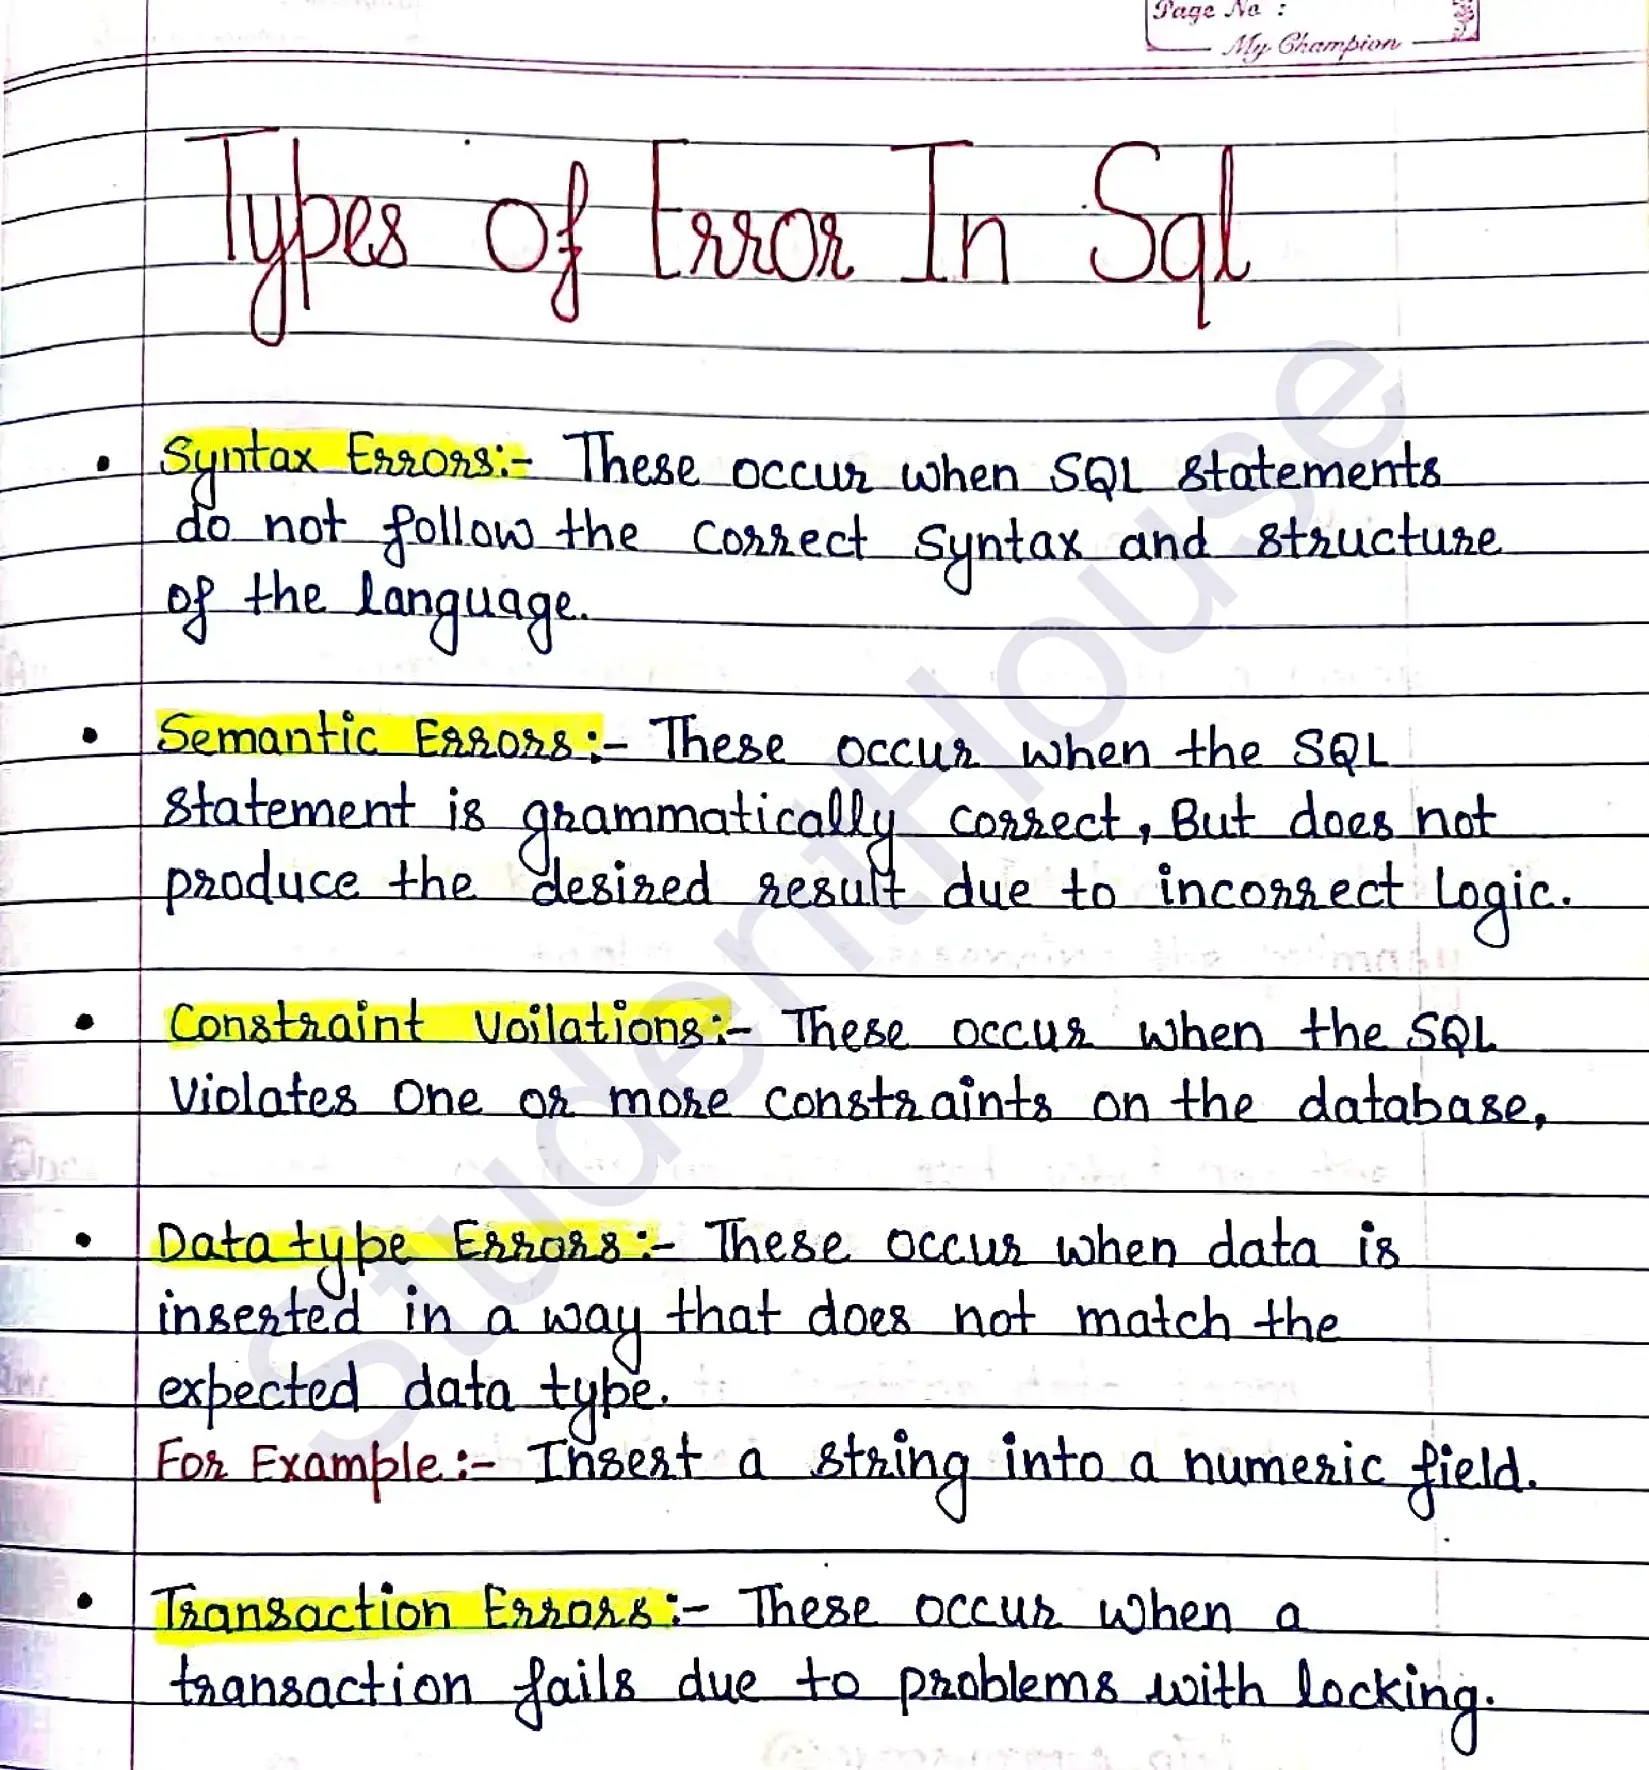 Page No :
My Champion
Types Of Error In Sql
• Syntax Errors:- These occur when SQL statements
do not follow the correct syntax and structure
of the language.
• Semantic Errors:- These occur when the SQL
statement is grammatically correct, But does not
produce the desired result due to incorrect logic.
• Constraint Voilations:- These occur when the SQL
Violates One or more constraints on the database,
• Data type Errors:- These occur when data is
inserted in a way that does not match the
expected data type.
For Example:- Insert a string into a numeric field.
• Transaction Errors:- These occur when a
transaction fails due to problems with locking.
StudentHouse